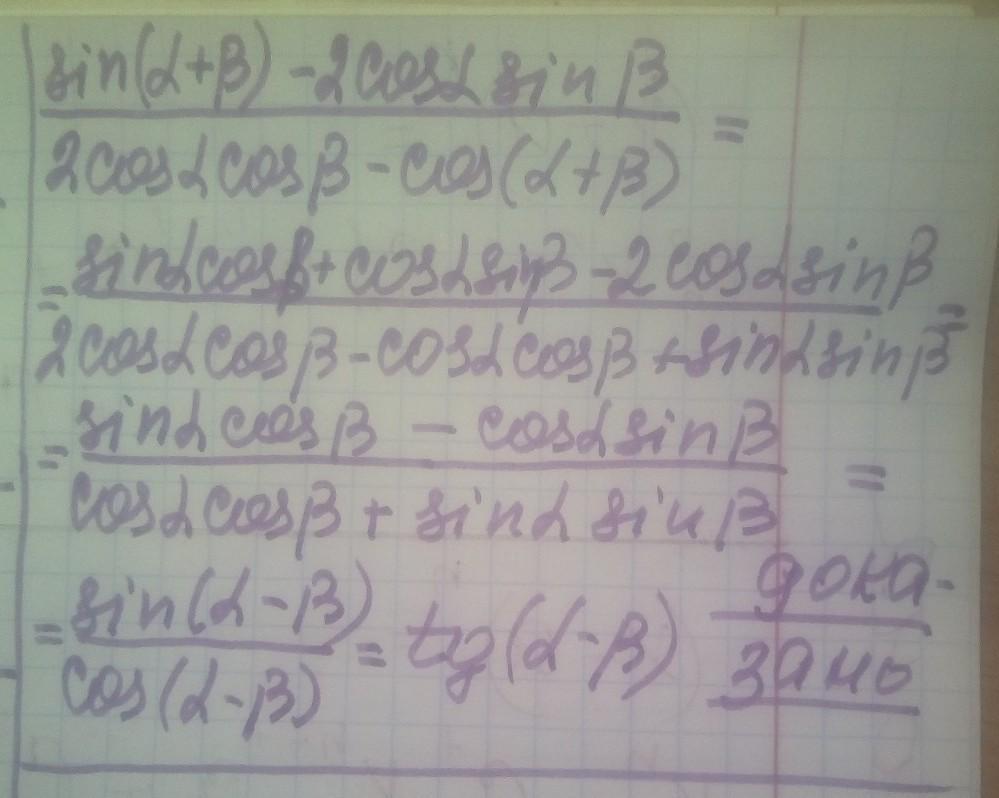 sin(α+β) - 2cosα sin β
2cosα cosβ - cos(α+β) =
= sinα cosβ + cosα sinβ - 2 cosα sinβ =
2cosα cosβ - cosα cosβ + sinα sinβ
= sinα cosβ - cosα sinβ =
cosα cosβ + sinα sin β
= sin(α-β) = tg(α-β) дока-
cos(α-β) зано